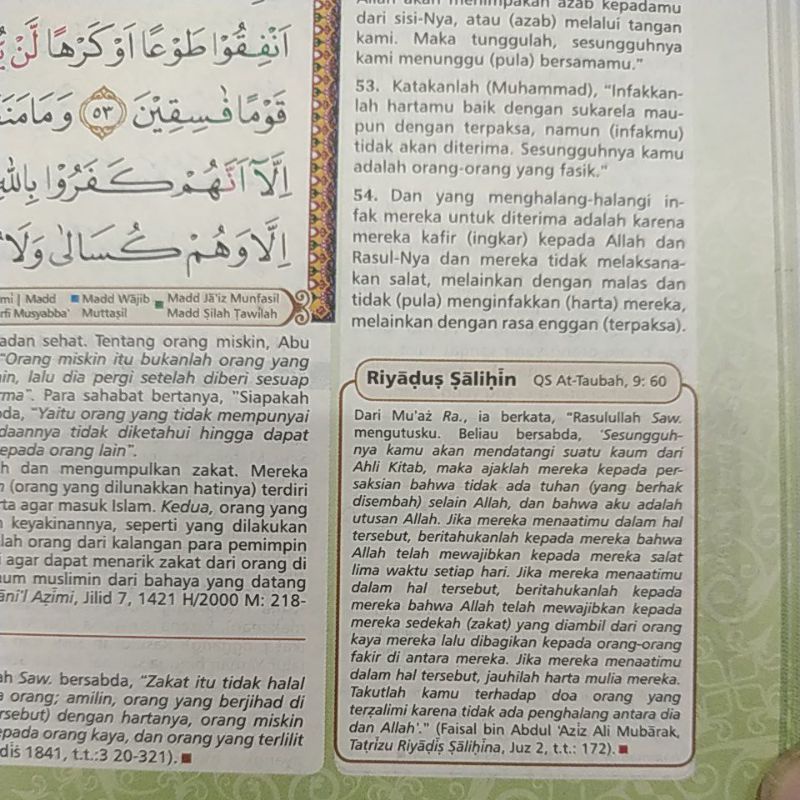 اَنْفِقُوْا طَوْعًا اَوْ كَرْهًا لَّنْ
قَوْمًا فٰسِقِيْنَ ٥٣ وَمَا مَنَعَ
اِلَّآ اَنَّهُمْ كَفَرُوْا بِاللّٰهِ
اِلَّا وَهُمْ كُسَالٰى وَلَا
mi | Madd Madd Wājib Madd Jā'iz Munfaṣil
rfi Musyabba' Muttaṣil Madd Ṣilah Ṭawīlah
adan sehat. Tentang orang miskin, Abu
"Orang miskin itu bukanlah orang yang
in, lalu dia pergi setelah diberi sesuap
rma". Para sahabat bertanya, "Siapakah
oda, "Yaitu orang yang tidak mempunyai
daannya tidak diketahui hingga dapat
epada orang lain".
h dan mengumpulkan zakat. Mereka
n (orang yang dilunakkan hatinya) terdiri
rta agar masuk Islam. Kedua, orang yang
n keyakinannya, seperti yang dilakukan
lah orang dari kalangan para pemimpin
i agar dapat menarik zakat dari orang di
um muslimin dari bahaya yang datang
āni'l Aẓīmi, Jilid 7, 1421 H/2000 M: 218-
ah Saw. bersabda, "Zakat itu tidak halal
a orang; amilin, orang yang berjihad di
rsebut) dengan hartanya, orang miskin
epada orang kaya, dan orang yang terlilit
dis 1841, t.t.:3 20-321).
Allah akan menimpakan azab kepadamu
dari sisi-Nya, atau (azab) melalui tangan
kami. Maka tunggulah, sesungguhnya
kami menunggu (pula) bersamamu."
53. Katakanlah (Muhammad), "Infakkan-
lah hartamu baik dengan sukarela mau-
pun dengan terpaksa, namun (infakmu)
tidak akan diterima. Sesungguhnya kamu
adalah orang-orang yang fasik."
54. Dan yang menghalang-halangi in-
fak mereka untuk diterima adalah karena
mereka kafir (ingkar) kepada Allah dan
Rasul-Nya dan mereka tidak melaksana-
kan salat, melainkan dengan malas dan
tidak (pula) menginfakkan (harta) mereka,
melainkan dengan rasa enggan (terpaksa).
Riyāḍuṣ Ṣāliḥīn QS At-Taubah, 9: 60
Dari Mu'aż Ra., ia berkata, "Rasulullah Saw.
mengutusku. Beliau bersabda, 'Sesungguh-
nya kamu akan mendatangi suatu kaum dari
Ahli Kitab, maka ajaklah mereka kepada per-
saksian bahwa tidak ada tuhan (yang berhak
disembah) selain Allah, dan bahwa aku adalah
utusan Allah. Jika mereka menaatimu dalam hal
tersebut, beritahukanlah kepada mereka bahwa
Allah telah mewajibkan kepada mereka salat
lima waktu setiap hari. Jika mereka menaatimu
dalam hal tersebut, beritahukanlah kepada
mereka bahwa Allah telah mewajibkan kepada
mereka sedekah (zakat) yang diambil dari orang
kaya mereka lalu dibagikan kepada orang-orang
fakir di antara mereka. Jika mereka menaatimu
dalam hal tersebut, jauhilah harta mulia mereka.
Takutlah kamu terhadap doa orang yang
terẓalimi karena tidak ada penghalang antara dia
dan Allah'." (Faisal bin Abdul 'Azīz Ali Mubārak,
Taṭrīzu Riyāḍiṣ Ṣāliḥīna, Juz 2, t.t.: 172).